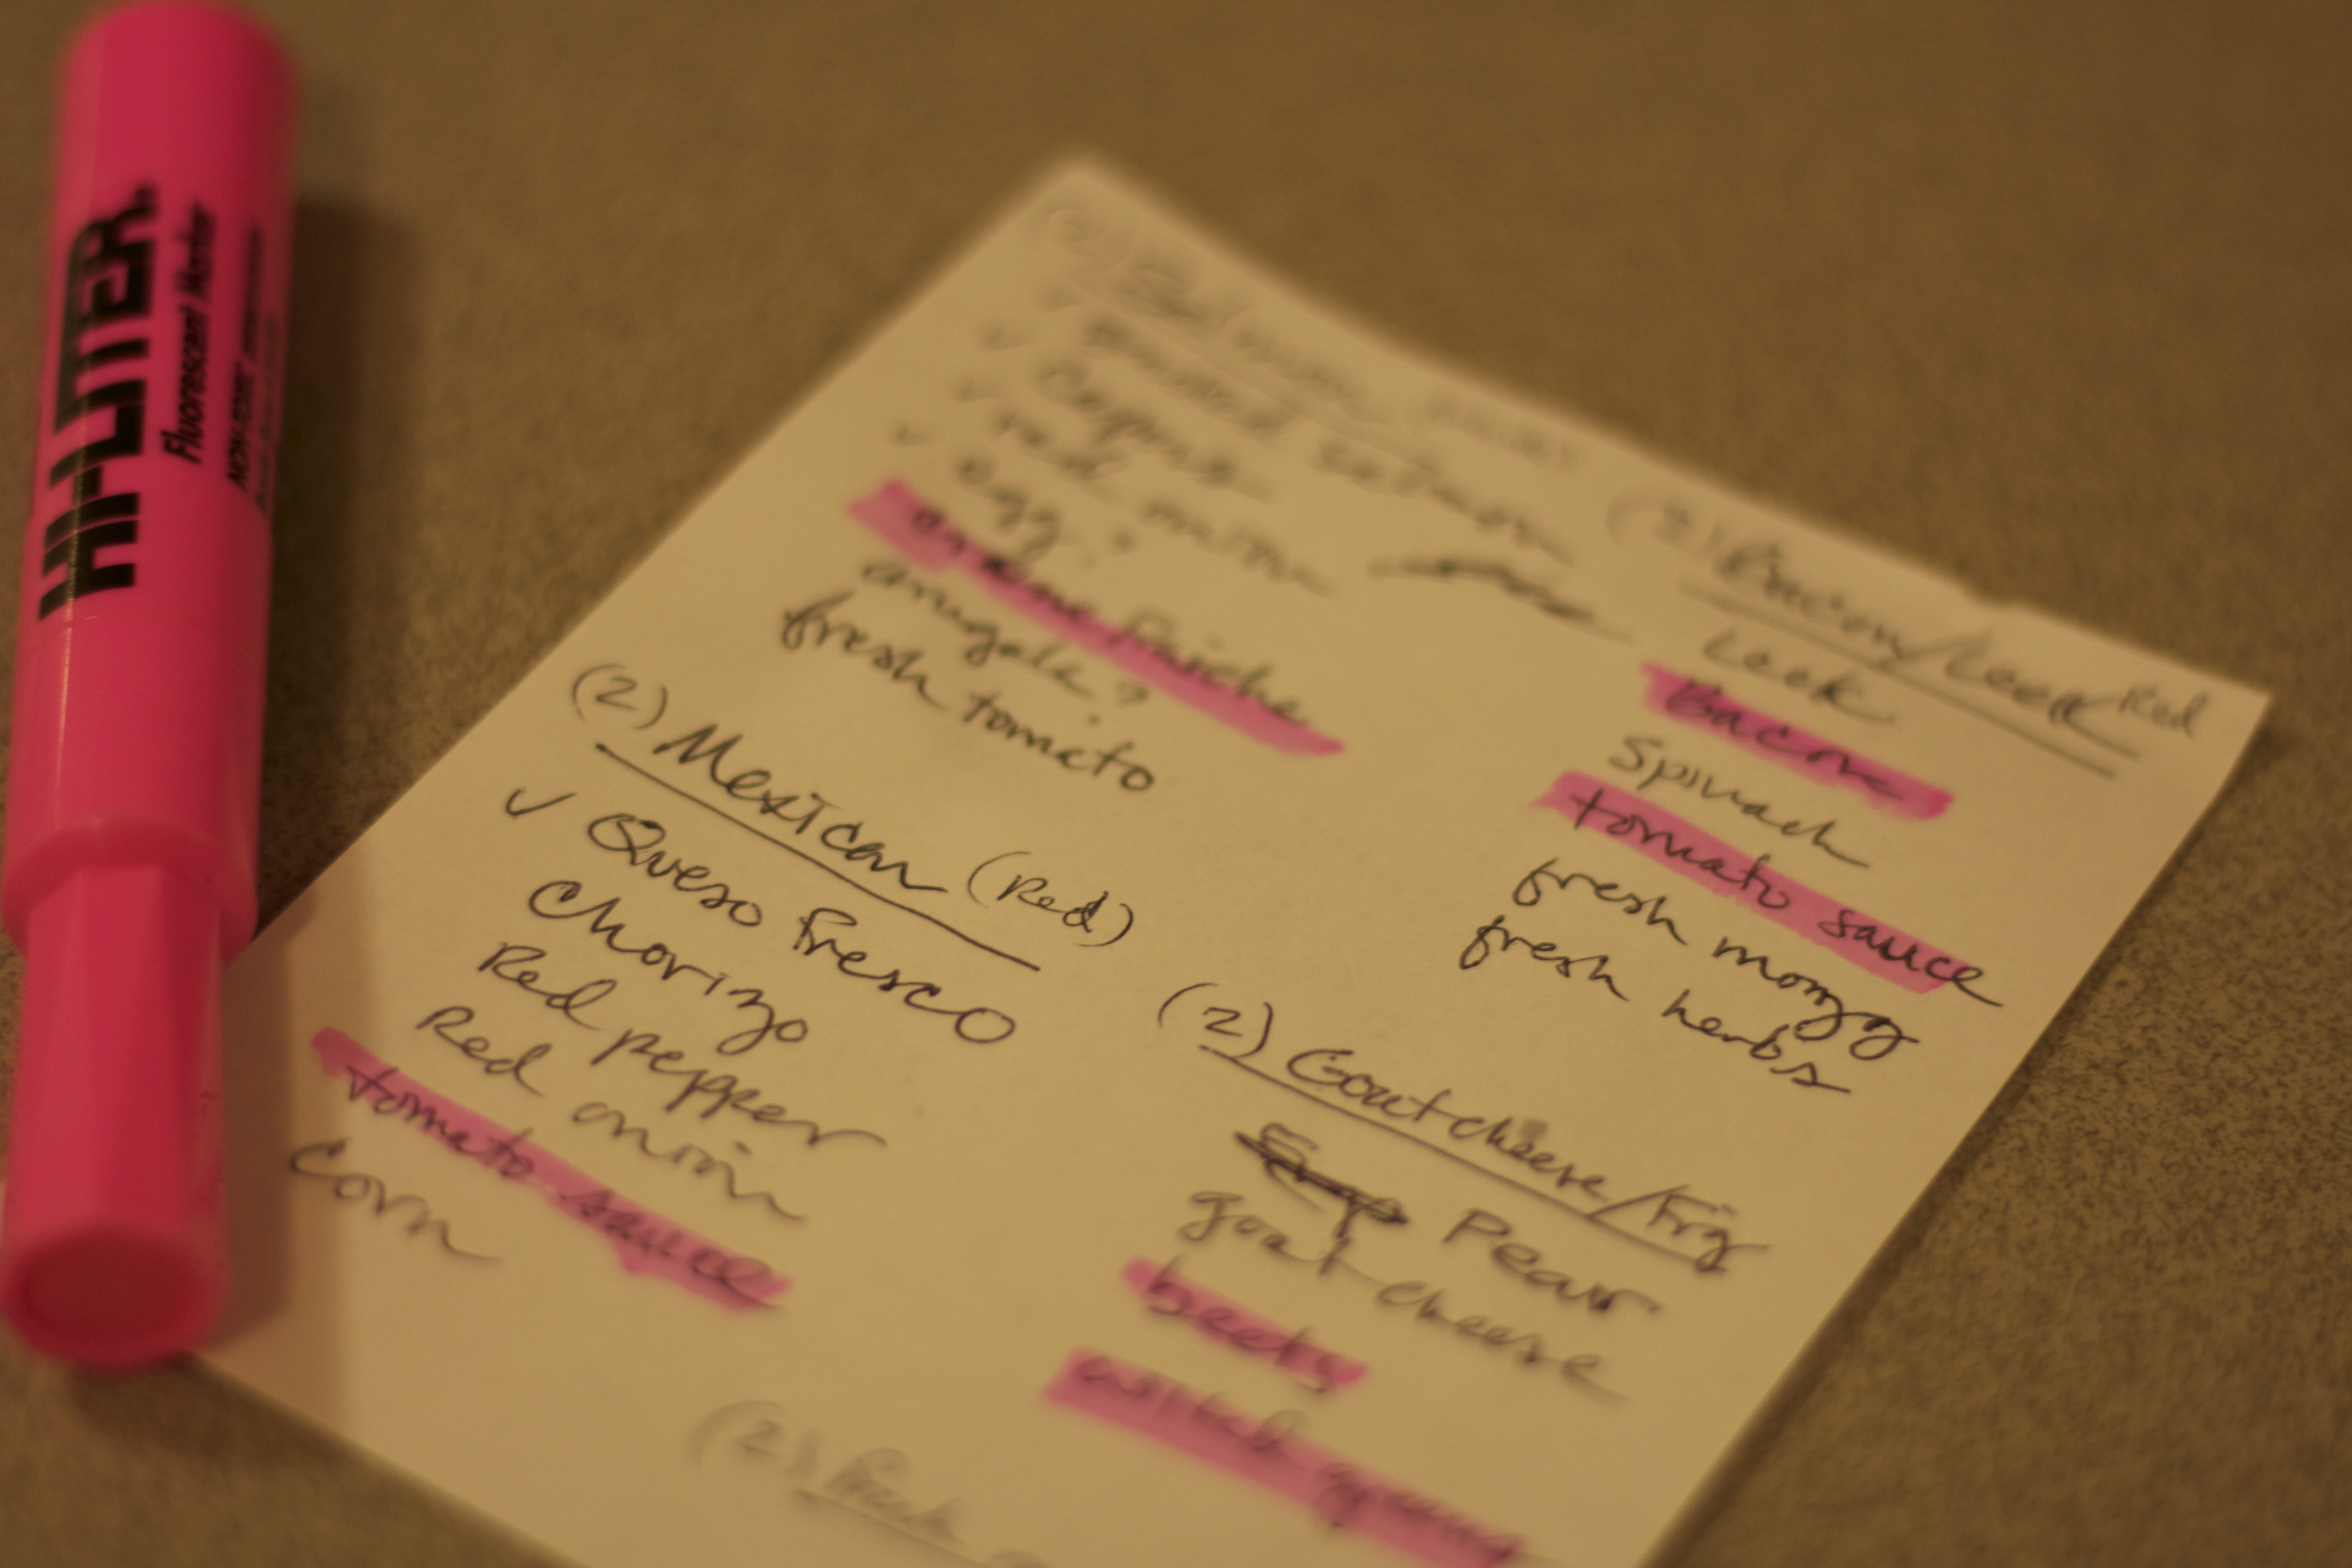 HI-LITER®
Fluorescent Marker
smoked salmon
Capers
✓ red onion
✓ egg?
creme fraiche
arugala?
fresh tomato
(2) Mexican (Red)
✓ Queso Fresco
Chorizo
Red pepper
Red onion
tomato sauce
Corn
(2) Bacon/Leek Red
Leek
Bacon
Spinach
tomato sauce
fresh mozz
fresh herbs
(2) Goat cheese/Fig
Pear
goat cheese
beets
wilted greens
(2)